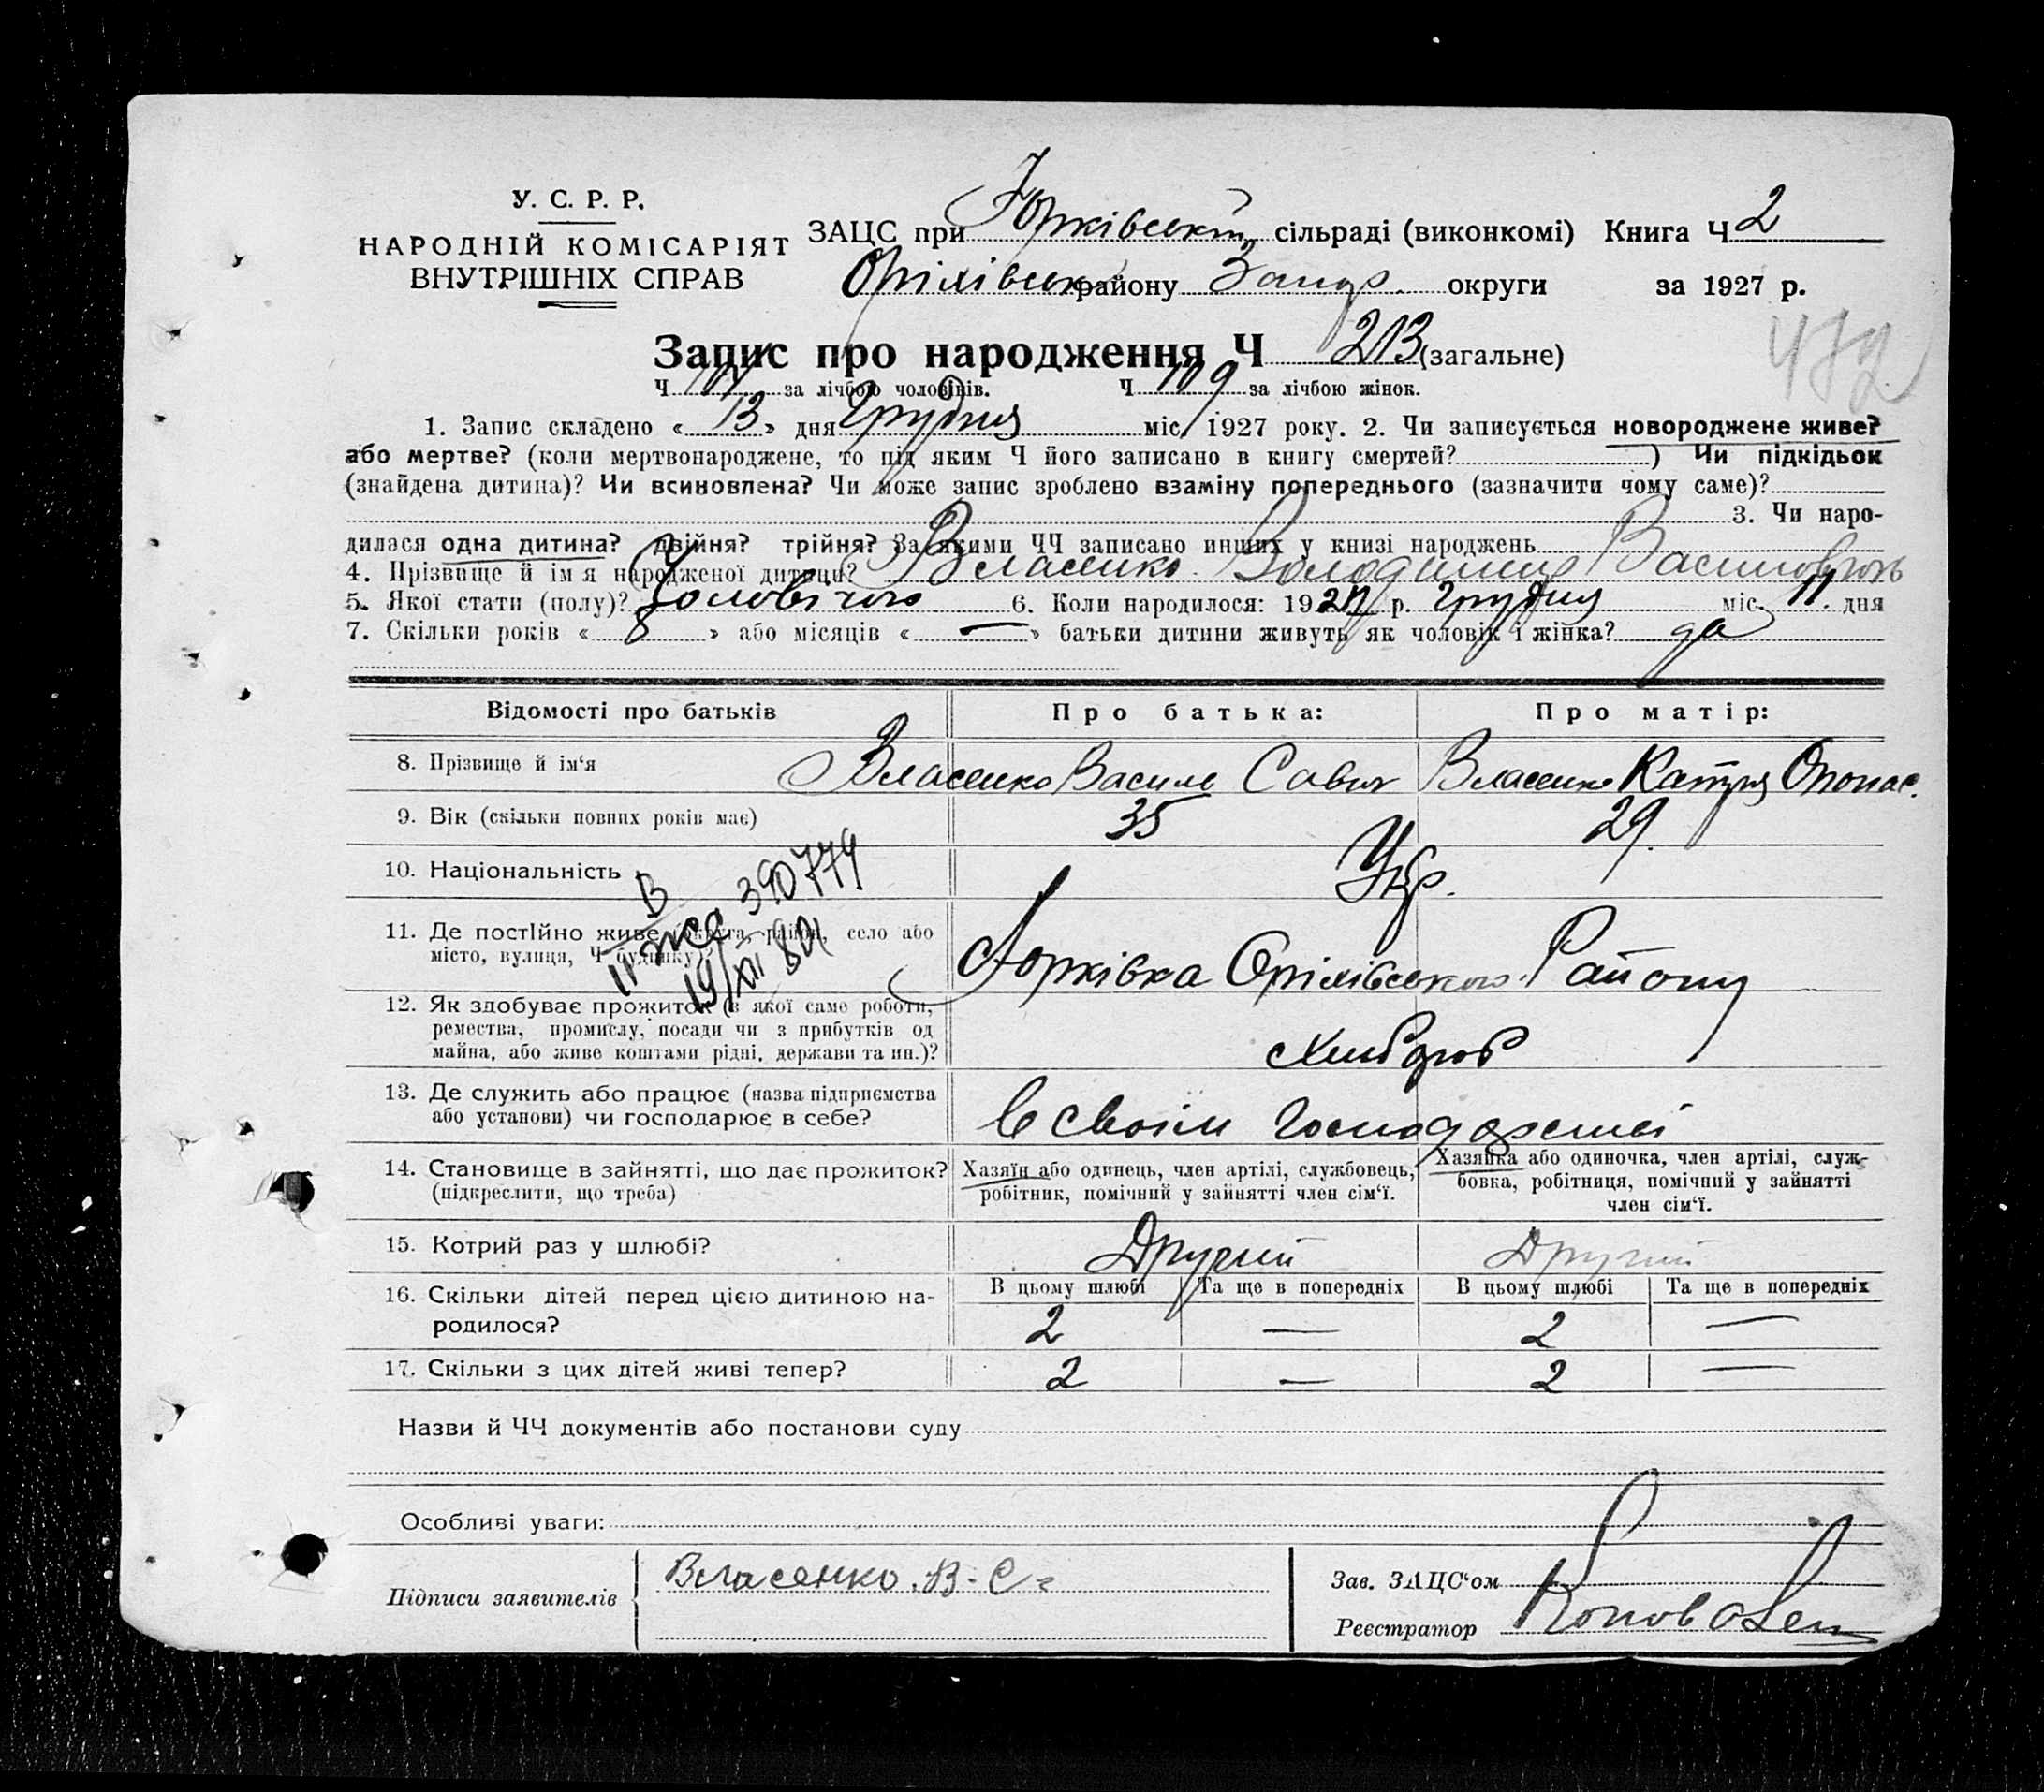 У. С. Р. Р.
НАРОДНІЙ КОМІСАРІЯТ
ВНУТРІШНІХ СПРАВ
ЗАЦС при Юрківській сільраді (виконкомі) Книга Ч 2
Оріхівськ району Запор. округи за 1927 р.
Запис про народження Ч 213 (загальне)
Ч 104 за лічбою чоловіків. Ч 109 за лічбою жінок.
1. Запис складено « 13 » дня Грудня міс. 1927 року. 2. Чи записується новороджене живе?
або мертве? (коли мертвонароджене, то під яким Ч його записано в книгу смертей? ) Чи підкідьок
(знайдена дитина)? Чи всиновлена? Чи може запис зроблено взаміну попереднього (зазначити чому саме)?
3. Чи наро-
дилася одна дитина? двійня? трійня? За якими ЧЧ записано инших у книзі народжень
4. Прізвище й ім'я народженої дитини? Власенко Володимир Васильович
5. Якої стати (полу)? Чоловічого 6. Коли народилося: 1927 р. Грудня міс. 11. дня
7. Скільки років « 8 » або місяців « — » батьки дитини живуть як чоловік і жінка? да
Відомості про батьків Про батька: Про матір:
8. Прізвище й ім'я Власенко Василь Савич Власенко Катря Опонас.
9. Вік (скільки повних років має) 35 29.
10. Національність Укр.
В 390774
II ЖС
19/XII 80
11. Де постійно живе (округа, район, село або
місто, вулиця, Ч будинку)? Юрківка Оріхівського Району
12. Як здобуває прожиток (з якої саме роботи,
ремества, промислу, посади чи з прибутків од
майна, або живе коштами рідні, держави та ин.)? Хлібороб
13. Де служить або працює (назва підприємства
або установи) чи господарює в себе? в своїм господарстві
14. Становище в зайнятті, що дає прожиток?
(підкреслити, що треба)
Хазяїн або одинець, член артілі, службовець,
робітник, помічний у зайнятті член сім'ї.
Хазяйка або одиночка, член артілі, служ-
бовка, робітниця, помічний у зайнятті
член сім'ї.
15. Котрий раз у шлюбі? Другий Другий
В цьому шлюбі Та ще в попередніх В цьому шлюбі Та ще в попередніх
16. Скільки дітей перед цією дитиною на-
родилося? 2 — 2 —
17. Скільки з цих дітей живі тепер? 2 — 2 —
Назви й ЧЧ документів або постанови суду
Особливі уваги:
Підписи заявителів Власенко. В. С.
Зав. ЗАЦС'ом
Реєстратор Коновалец